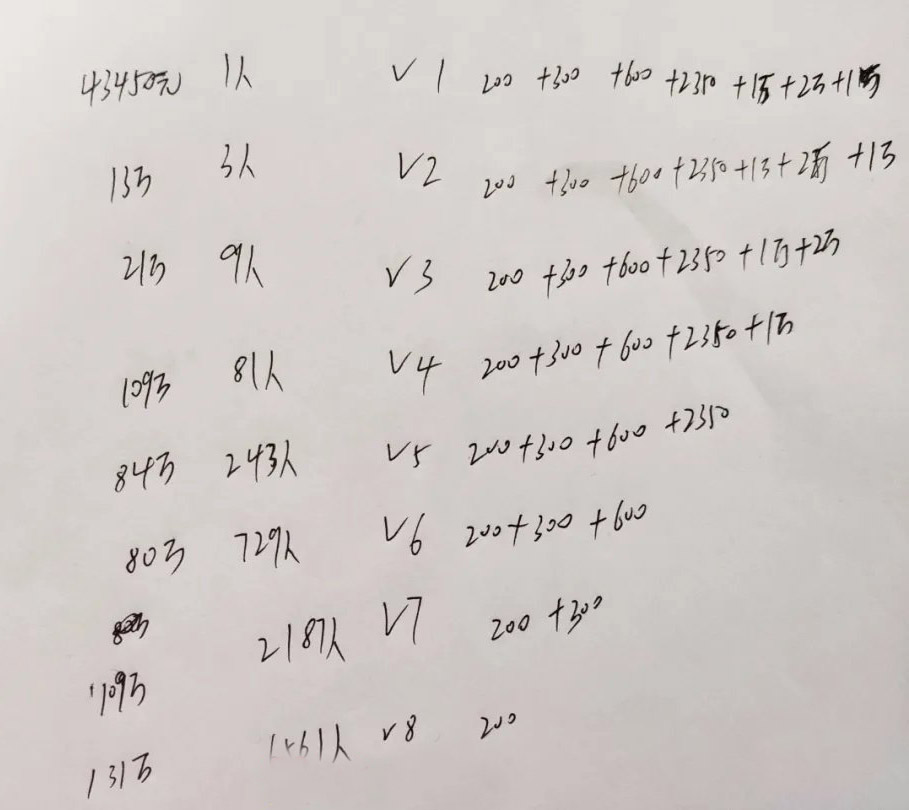 43450元 1人 V1 200 +300 +600 +2350 +1万 +2万 +1万
13万 3人 V2 200 +300 +600 +2350 +1万 +2万 +1万
21万 9人 V3 200 +300 +600 +2350 +1万 +2万
109万 81人 V4 200 +300 +600 +2350 +1万
84万 243人 V5 200 +300 +600 +2350
80万 729人 V6 200 +300 +600
2187人 V7 200 +300
109万
131万 V8 200